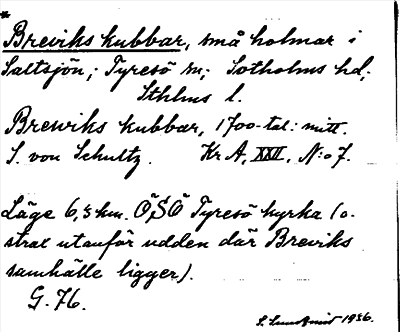 *
Breviks kubbar, små holmar i
Saltsjön; Tyresö sn; Sotholms hd;
Sthlms l.
Brewiks kubbar, 1700-tal: mitt.
S. von Schultz. Kr A, XXII, N:o 7.
Läge 6,5 km. ÖSÖ Tyresö kyrka (o-
strax utanför udden där Breviks
samhälle ligger).
G. 76.
S. Lundqvist 1936.